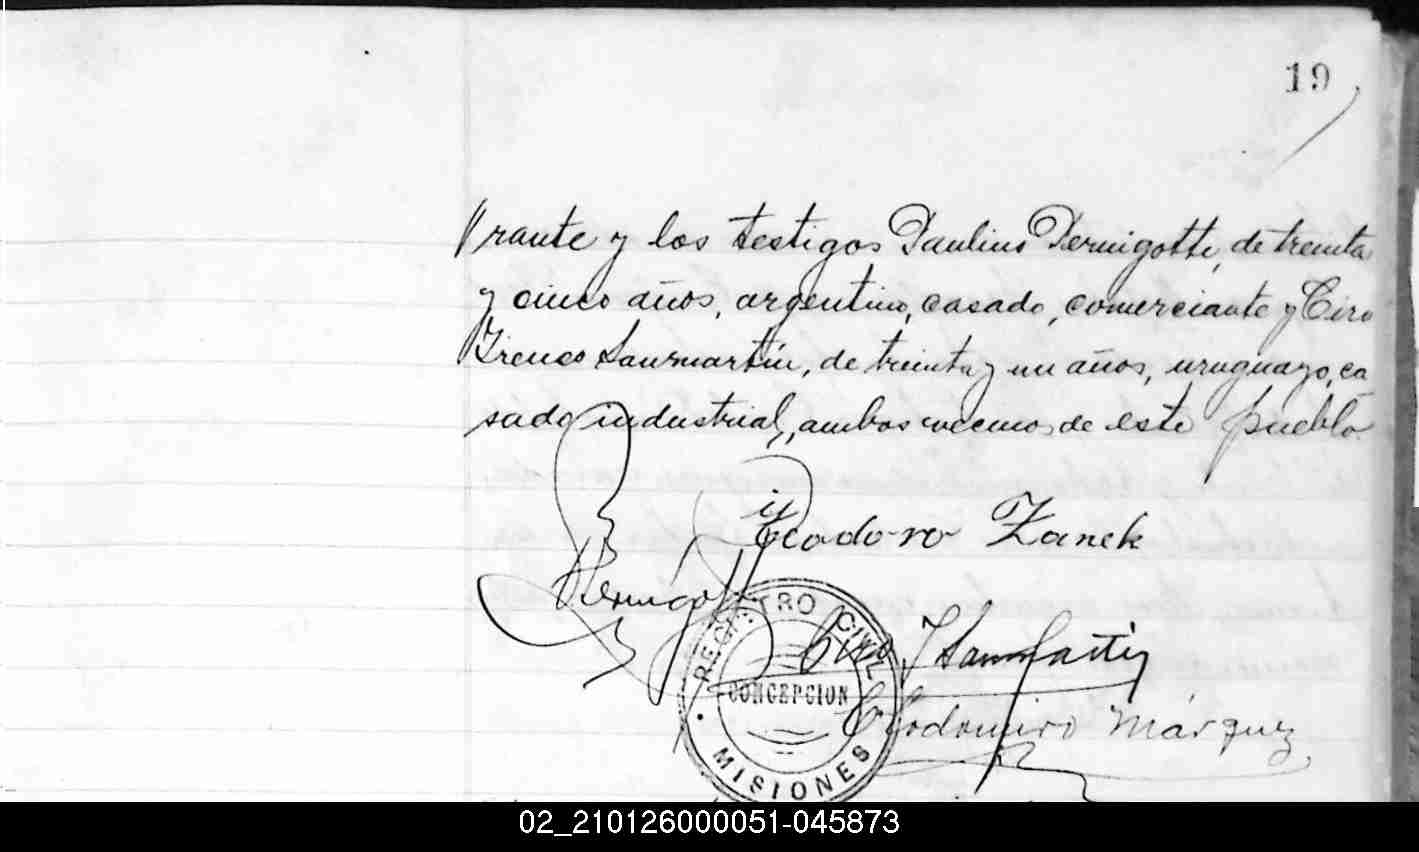 19
//rante y los testigos Paulino Pernigotti, de treinta
y cinco años, argentino, casado, comerciante y Ciro
Ireneo Sanmartín, de treinta y un años, uruguayo, ca
sado industrial, ambos vecinos de este pueblo.
Teodoro Zanek
Pernigotti
Ciro I Sanmartin
Clodomiro Márquez
REGISTRO CIVIL
CONCEPCION
MISIONES
02_210126000051-045873